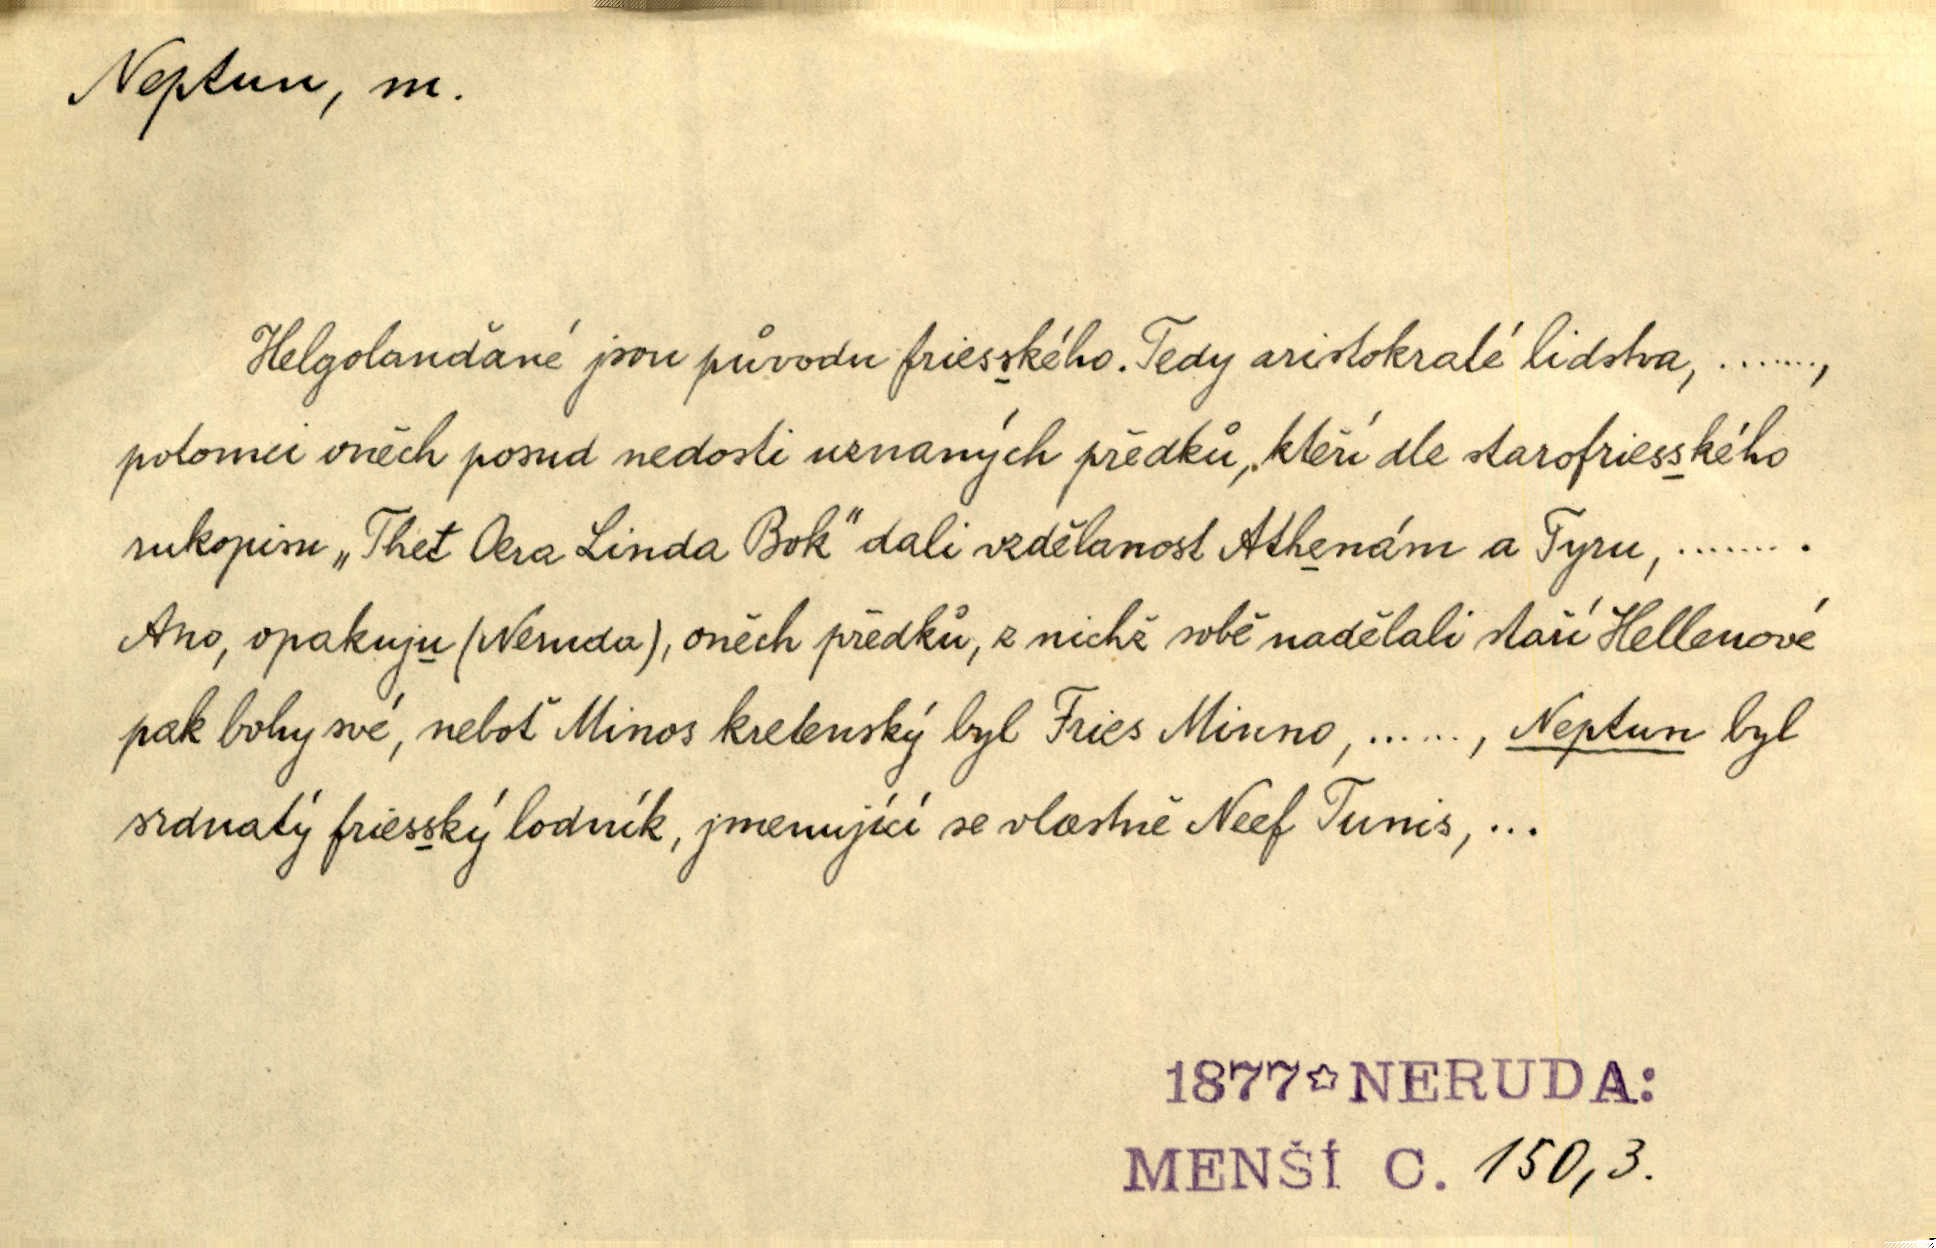 Neptun, m.
Helgolanďané jsou původu friesského. Tedy aristokraté lidstva, .......,
potomci oněch posud nedosti uznaných předků, kteří dle starofriesského
rukopisu „Thet Oera Linda Bok“ dali vzdělanost Athenám a Tyru, ....... .
Ano, opakuju (Neruda), oněch předků, z nichž sobě nadělali staří Hellenové
pak bohy své, neboť Minos kretenský byl Fries Minno, ......, Neptun byl
srdnatý friesský lodník, jmenující se vlastně Neef Tunis, ...
1877☆NERUDA:
MENŠÍ C. 150,3.